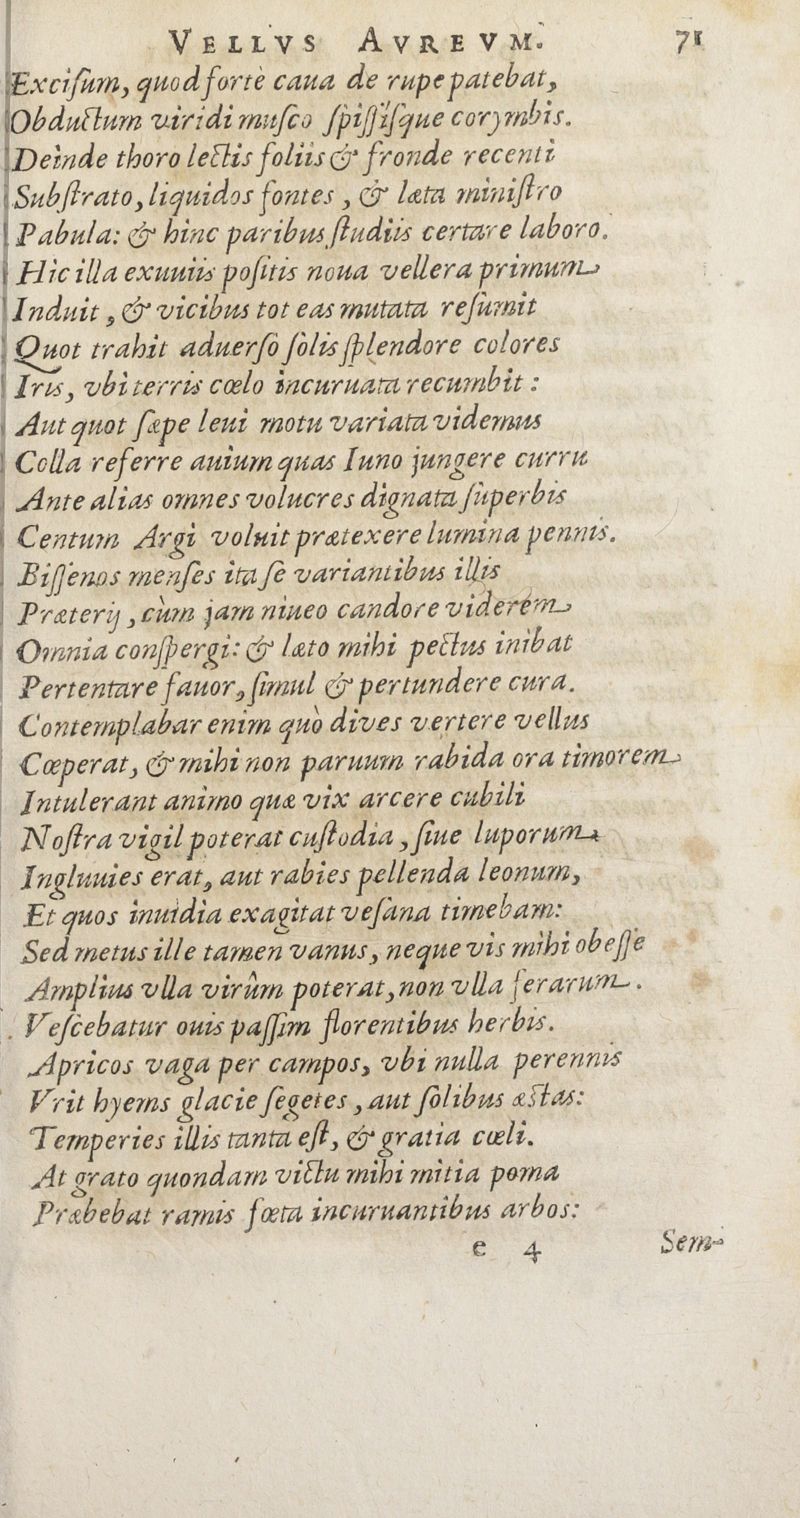 VELLVS AVREVM. 71
Excisum, quod forte caua de rupe patebat,
Obductum viridi musco spissisque corymbis.
Deinde thoro lectis foliis & fronde recenti
Substrato, liquidos fontes, & læta ministro
Pabula: & hinc paribus studiis certare laboro.
Hic illa exuuiis positis noua vellera primum
Induit, & vicibus tot eas mutata resumit
Quot trahit aduerso solis splendore colores
Iris, vbi terris cœlo incuruata recumbit:
Aut quot sæpe leui motu variata videmus
Colla referre auium quas Iuno jungere curru
Ante alias omnes volucres dignata superbis
Centum Argi voluit prætexere lumina pennis.
Bissenos menses ita se variantibus illis
Præterij, cùm jam niueo candore viderem
Omnia conspergi: & læto mihi pectus inibat
Pertentare fauor, simul & pertundere cura.
Contemplabar enim quò dives vertere vellus
Cœperat, & mihi non paruum rabida ora timorem
Intulerant animo quæ vix arcere cubili
Nostra vigil poterat custodia, siue luporum
Ingluuies erat, aut rabies pellenda leonum,
Et quos inuidia exagitat vesana timebam:
Sed metus ille tamen vanus, neque vis mihi obesse
Amplius vlla virûm poterat, non vlla ferarum.
Vescebatur ouis passim florentibus herbis.
Apricos vaga per campos, vbi nulla perennis
Vrit hyems glacie segetes, aut solibus æstas:
Temperies illis tanta est, & gratia cœli.
At grato quondam victu mihi mitia poma
Præbebat ramis fœta incuruantibus arbos:
e 4 Sem-